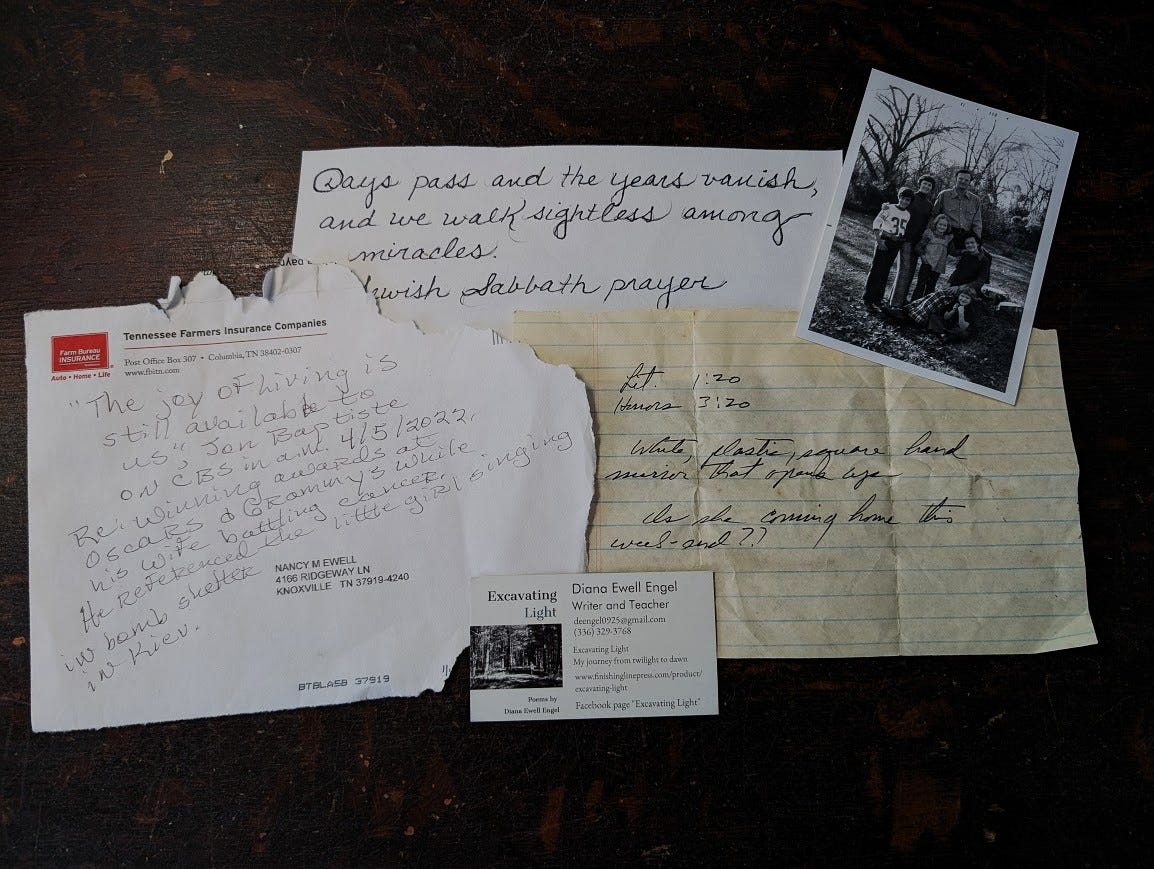 Days pass and the years vanish,
and we walk sightless among
miracles.
wish Sabbath prayer
Farm Bureau
INSURANCE
Auto • Home • Life
Tennessee Farmers Insurance Companies
Post Office Box 307 • Columbia, TN 38402-0307
www.fbitn.com
"The joy of living is
still available to
us", Jon Baptiste
on CBS in a.m. 4/5/2022.
Re: Winning awards at
Oscars & Grammy's while
his wife battling cancer.
He referenced the little girl singing
in bomb shelter
in Kiev.
NANCY M EWELL
4166 RIDGEWAY LN
KNOXVILLE TN 37919-4240
BTBLASB 37919
35
Lit. 1:20
Honors 3:20
White, plastic, square hand
mirror that opens up
Is she coming home this
week-end??
Excavating
Light
Poems by
Diana Ewell Engel
Diana Ewell Engel
Writer and Teacher
deengel0925@gmail.com
(336) 329-3768
Excavating Light
My journey from twilight to dawn
www.finishinglinepress.com/product/
excavating-light
Facebook page "Excavating Light"